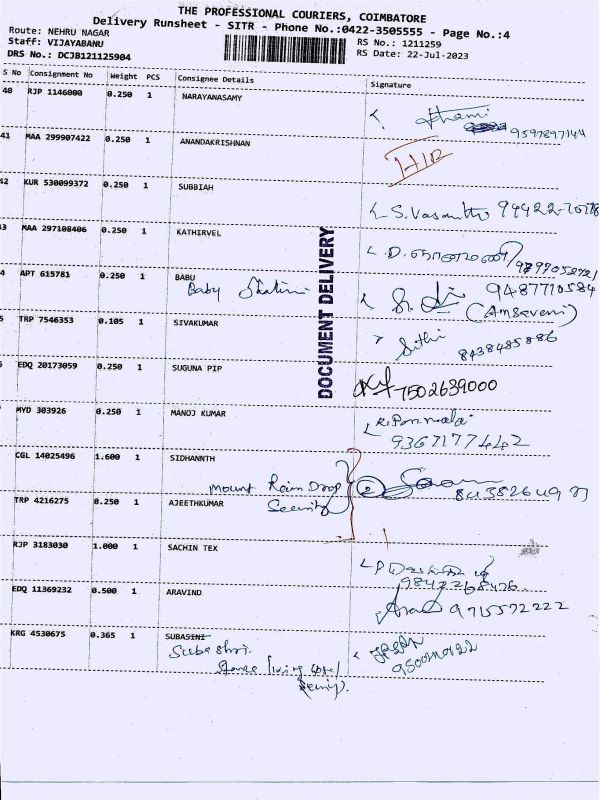 THE PROFESSIONAL COURIERS, COIMBATORE
Delivery Runsheet - SITR - Phone No.:0422-3505555 - Page No.:4
Route: NEHRU NAGAR
Staff: VIJAYABANU
DRS No.: DCJB121125904
RS No.: 1211259
RS Date: 22-Jul-2023
S No Consignment No Weight PCS Consignee Details Signature
40 RJP 1146000 0.250 1 NARAYANASAMY
9597897144
41 MAA 299907422 0.250 1 ANANDAKRISHNAN
42 KUR 530099372 0.250 1 SUBBIAH S. Vasantha
3 MAA 297108406 0.250 1 KATHIRVEL D.
4 APT 615781 0.250 1 BABU 9487710584
Baby (Amsaveni)
5 TRP 7546353 0.105 1 SIVAKUMAR Sithi
8438485886
EDQ 20173059 0.250 1 SUGUNA PIP 7502639000
MYD 303926 0.250 1 MANOJ KUMAR
9367177442
CGL 14025496 1.600 1 SIDHANNTH
Mount Rain Drop 2
Security
TRP 4216275 0.250 1 AJEETHKUMAR
RJP 3183030 1.000 1 SACHIN TEX
EDQ 11369232 0.500 1 ARAVIND 9715572222
KRG 4530675 0.365 1 SUBASINI
Subashri.
DOCUMENT DELIVERY